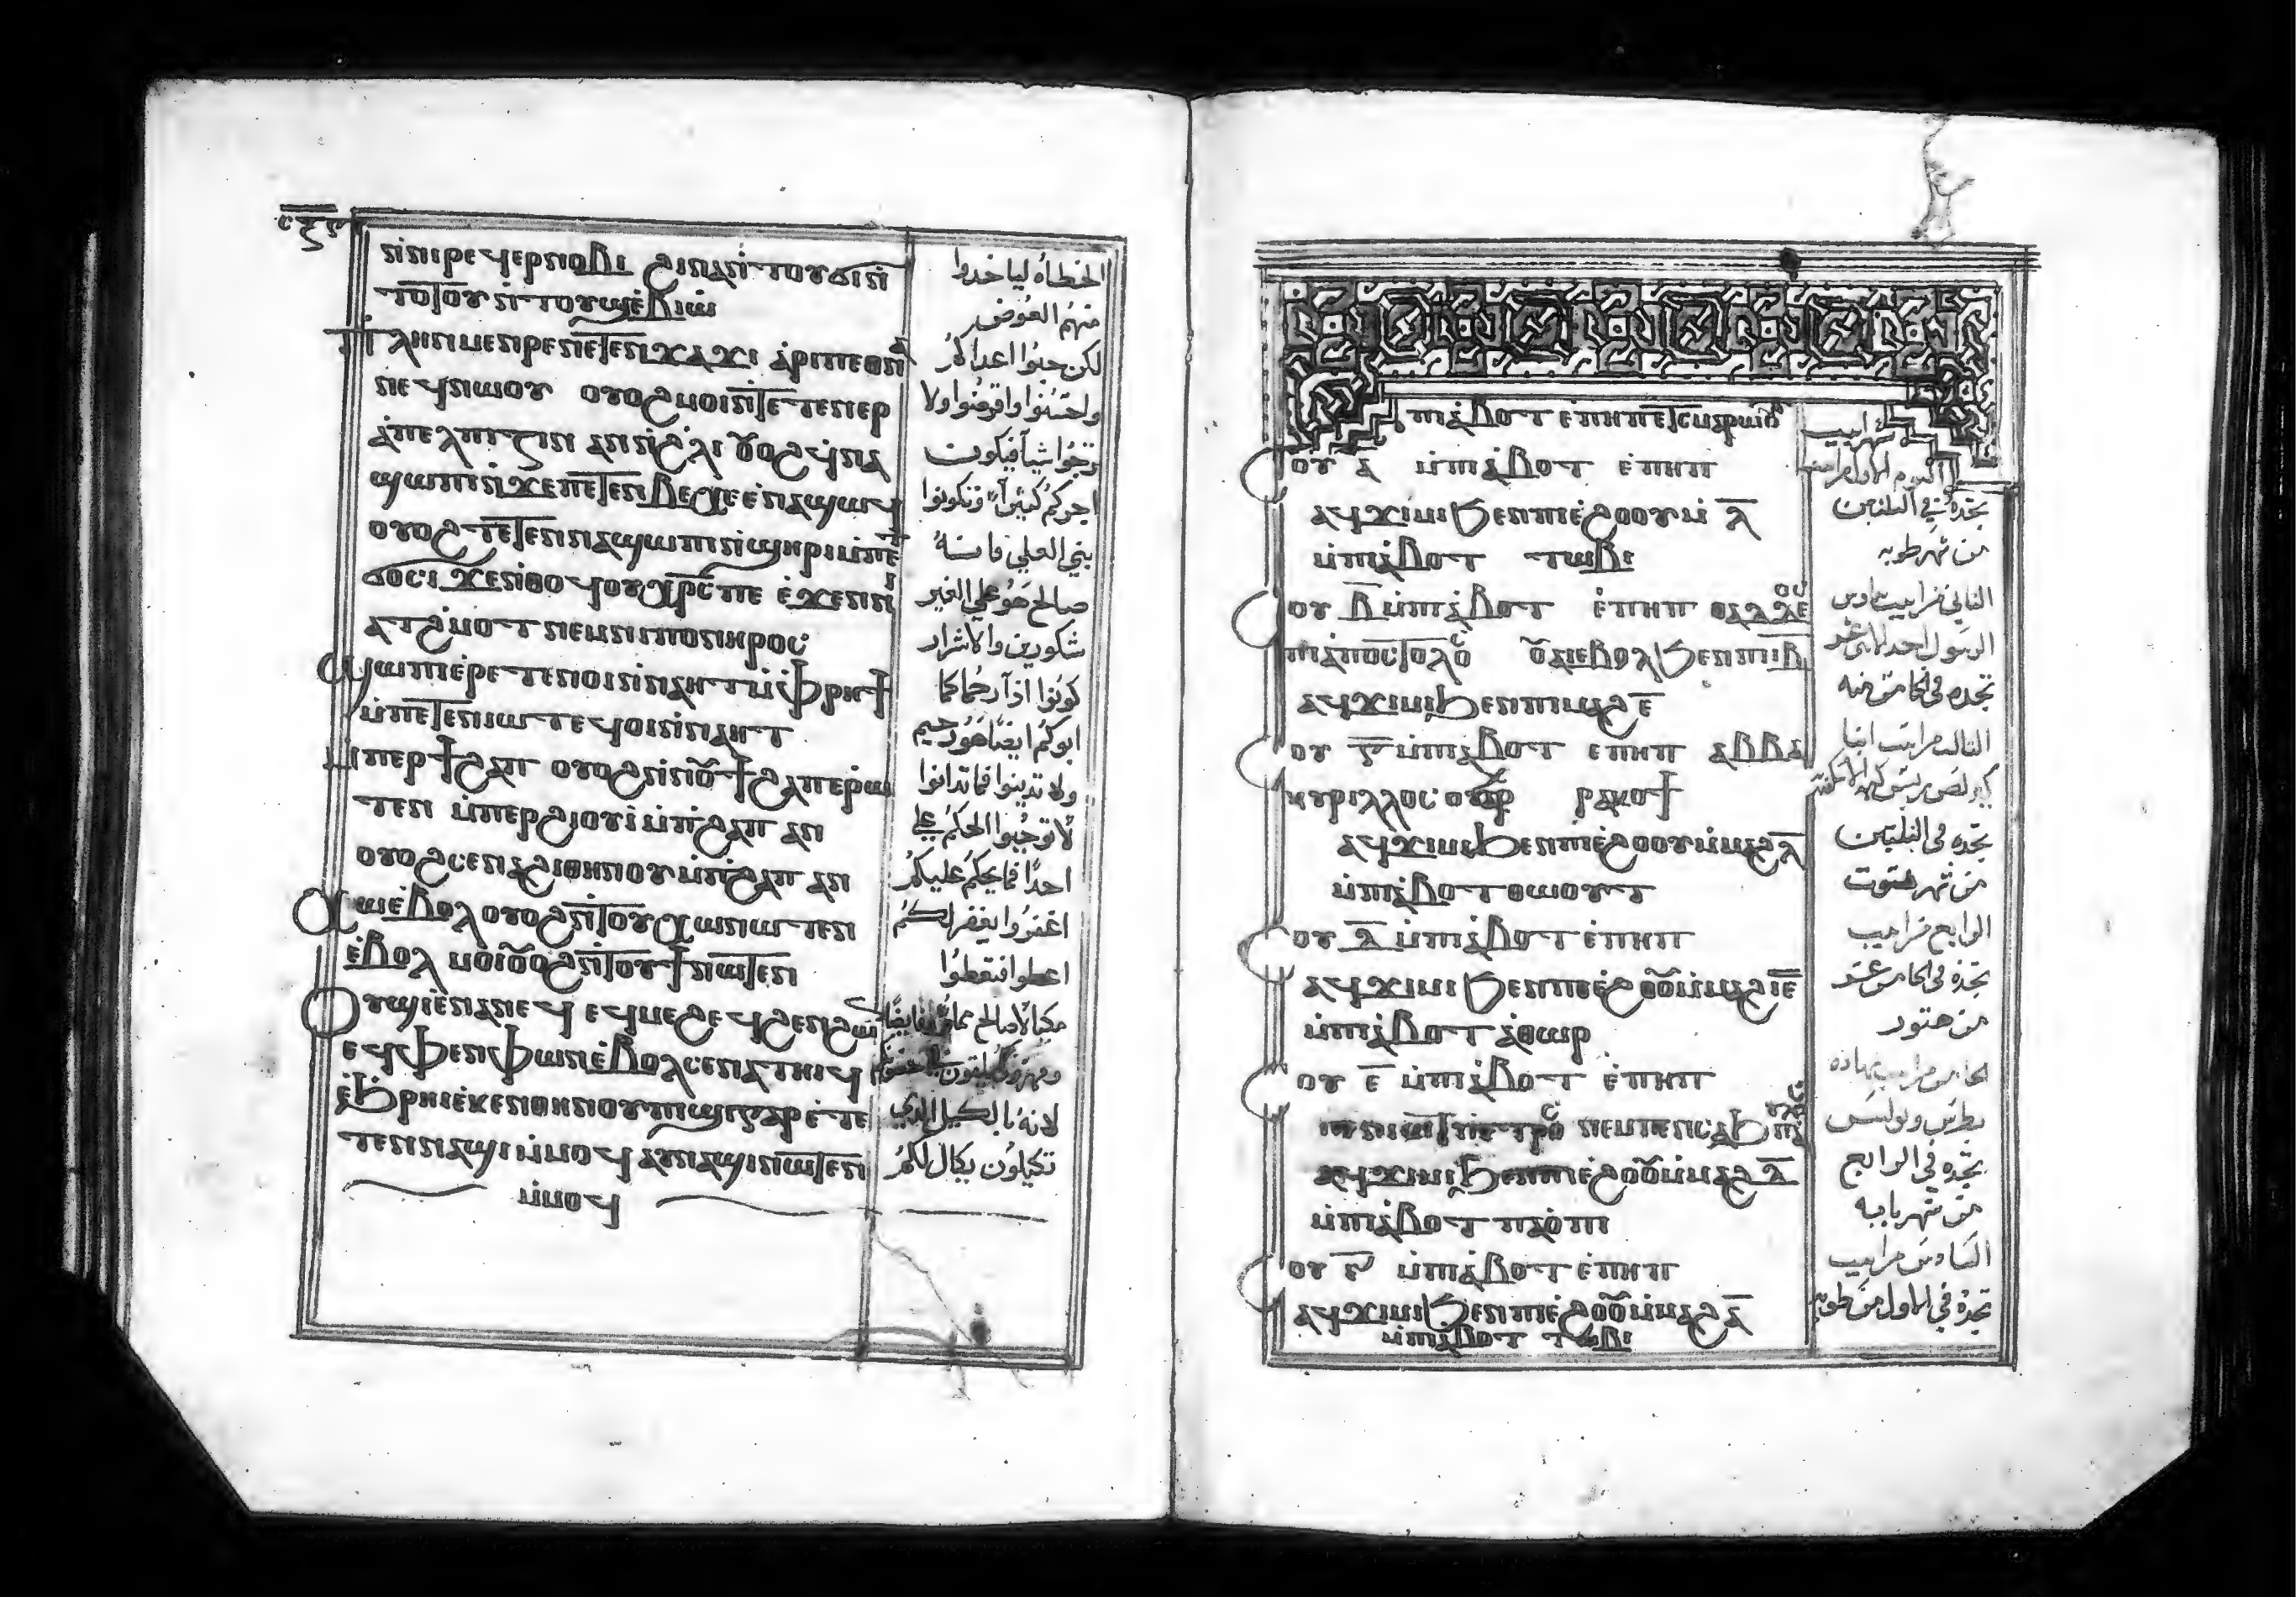 ⲛ̀ⲛⲓⲣⲉϥⲉⲣⲛⲟⲃⲓ ϩⲓⲛⲁⲛ̀ⲧⲟⲩϭⲓⲛ̀
ⲧⲟⲧⲟⲩ ⲛ̀ⲧⲟⲩϣⲉ̀ⲃⲓⲱ̀
ⲡⲗⲏⲛ ⲙⲉⲛⲣⲉⲛⲉⲧⲉⲛϫⲁϫⲓ ⲁ̀ⲣⲓⲡⲉⲑⲛⲁ
ⲛⲉϥⲛⲱⲟⲩ ⲟⲩⲟϩⲙⲟⲓⲛ̀ⲧⲉⲧⲉⲛⲉⲣ
ⲁ̀ⲡⲉⲗⲡⲓⲍⲓⲛ ⲁⲛⲛ̀ϩ̀ⲗⲓ ⲟⲩⲟϩϥ̀ⲛⲁ
ϣⲱⲡⲓⲛ̀ϫⲉⲡⲉⲧⲉⲛⲃⲉⲭⲉⲉ̀ⲛⲁϣⲱϥ
ⲟⲩⲟϩⲧⲉⲧⲉⲛⲛⲁϣⲱⲡⲓⲛ̀ϣⲏⲣⲓⲙ̀ⲡⲉⲧ
ϭⲟⲥⲓ ϫⲉⲛ̀ⲑⲟϥⲟⲩⲭⲣ̅ⲥ̅ⲡⲉ ⲉ̀ϫⲉⲛⲛⲓ
ⲁⲧϩ̀ⲙⲟⲧ ⲛⲉⲙⲛⲓⲡⲟⲛⲏⲣⲟⲥ
ϣⲱⲡⲓⲉ̀ⲣⲉⲧⲉⲛⲟⲓⲛ̀ⲛⲁⲏⲧ ⲙ̀ⲫⲣⲏϯ
ⲙ̀ⲡⲉⲧⲉⲛⲓⲱⲧⲉϥⲟⲓⲛ̀ⲛⲁⲏⲧ
ⲙ̀ⲡⲉⲣϯϩⲁⲡ ⲟⲩⲟϩⲛ̀ⲛⲟⲩϯϩⲁⲡⲉⲣⲱ
ⲧⲉⲛ ⲙ̀ⲡⲉⲣϩⲓⲟⲩⲓ̀ⲙ̀ⲡ̀ϩⲁⲡ ⲁⲛ
ⲟⲩⲟϩⲥⲉⲛⲁϩⲓⲑⲏⲛⲟⲩ ⲙ̀ⲡ̀ϩⲁⲡ ⲁⲛ
ⲭⲱⲉ̀ⲃⲟⲗ ⲟⲩⲟϩⲛ̀ⲧⲟⲩⲭⲱⲛⲱⲧⲉⲛ
ⲉ̀ⲃⲟⲗ ⲙⲟⲓⲟⲩⲟϩⲛ̀ⲧⲟⲩϯⲛⲱⲧⲉⲛ
ⲟⲩϣⲓⲉ̀ⲛⲁⲛⲉϥ ⲉϥⲙⲉϩⲉϥϩⲉⲛϩⲱⲛ
ⲉϥⲫⲉⲛⲫⲱⲛⲉ̀ⲃⲟⲗⲥⲉⲛⲁⲧⲏⲓϥ
ⲉ̀ϧⲣⲏⲓⲉ̀ⲕⲉⲛⲑⲏⲛⲟⲩ ⲡⲓϣⲓⲅⲁⲣⲉ̀ⲧⲉ
ⲧⲉⲛⲛⲁϣⲓⲙ̀ⲙⲟϥ ⲁⲩⲛⲁϣⲓⲛⲱⲧⲉⲛ
ⲙ̀ⲙⲟϥ
الخطاه لياخدوا
منهم العوض
لكن حبوا اعداكم
واحسنوا واقرضوا ولا
ترجوا شيا فيكون
اجركم كثيرا وتكونوا
بني العلي فانه
صالح هو علي الغير
شكورين والاشرار
كونوا اذا رحما كما
ابوكم ايضا هو رحيم
ولا تدينوا فما تدانوا
لا توجبوا الحكم علي
احدا فما يحكم عليكم
اغفروا يغفر لكم
اعطوا فتعطوا
لانه بالكيل الذي
تكيلون يكال لكم
ⲡⲓⲁ̀ⲃⲟⲧ ⲉⲡⲏⲡ
ⲥⲟⲩ ⲁ̅ ⲙ̀ⲡⲓⲁ̀ⲃⲟⲧ ⲉ̀ⲡⲏⲡ
ⲁϥϫⲓⲙⲓ ϧⲉⲛⲡⲓⲉ̀ϩⲟⲟⲩ ⲙ̀ ⲗ̅
ⲙ̀ⲡⲓⲁ̀ⲃⲟⲧ ⲧⲱⲃⲓ
ⲥⲟⲩ ⲃ̅ ⲙ̀ⲡⲓⲁ̀ⲃⲟⲧ ⲉ̀ⲡⲏⲡ ⲑⲁⲇⲇⲉⲟⲩ
ⲡⲓⲁ̀ⲡⲟⲥⲧⲟⲗⲟⲥ ⲟⲩⲁⲓⲉ̀ⲃⲟⲗϧⲉⲛⲡⲓⲓ̅ⲃ̅
ⲁϥϫⲓⲙⲓϧⲉⲛⲡⲓⲙⲁϩ ⲉ̅
ⲥⲟⲩ ⲅ̅ ⲙ̀ⲡⲓⲁ̀ⲃⲟⲧ ⲉⲡⲏⲡ ⲁⲃⲃⲁ
ⲕⲩⲣⲓⲗⲗⲟⲥ ⲣⲁⲕⲟϯ
ⲁϥϫⲓⲙⲓϧⲉⲛⲡⲓⲉ̀ϩⲟⲟⲩ ⲙ̀ⲙⲁϩ ⲗ̅
ⲙ̀ⲡⲓⲁ̀ⲃⲟⲧ ⲑⲱⲟⲩⲧ
ⲥⲟⲩ ⲇ̅ ⲙ̀ⲡⲓⲁ̀ⲃⲟⲧ ⲉ̀ⲡⲏⲡ
ⲁϥϫⲓⲙⲓ ϧⲉⲛⲡⲓⲉ̀ϩⲟⲟⲩ ⲙ̀ⲙⲁϩ ⲓ̅ⲉ̅
ⲙ̀ⲡⲓⲁ̀ⲃⲟⲧ ⲁ̀ⲑⲱⲣ
ⲥⲟⲩ ⲉ̅ ⲙ̀ⲡⲓⲁ̀ⲃⲟⲧ ⲉ̀ⲡⲏⲡ
ⲡⲉⲛⲓⲱⲧ ⲡⲉⲧⲣⲟⲥ ⲛⲉⲙⲡⲉⲛⲥⲁϧ ⲡⲁⲩⲗⲟⲥ
ⲁϥϫⲓⲙⲓϧⲉⲛⲡⲓⲉ̀ϩⲟⲟⲩ ⲙ̀ⲙⲁϩ ⲇ̅
ⲙ̀ⲡⲓⲁ̀ⲃⲟⲧ ⲡⲁⲟ̀ⲡⲓ
ⲥⲟⲩ ⲋ̅ ⲙ̀ⲡⲓⲁ̀ⲃⲟⲧ ⲉ̀ⲡⲏⲡ
ⲁϥϫⲓⲙⲓϧⲉⲛⲡⲓⲉ̀ϩⲟⲟⲩ ⲙ̀ⲙⲁϩ ⲁ̅
ⲙ̀ⲡⲓⲁ̀ⲃⲟⲧ ⲧⲱⲃⲓ
شهر ابيب
اليوم الاول من ابيب
تجده في الثلثين
من شهر طوبه
الثاني من ابيب تداوس
الرسول احد الاثني عشر
تجده في الخامس منه
الثالث من ابيب انبا
تجده في الثلثين
من شهر توت
الرابع من ابيب
تجده في الخامس عشر
من هتور
الخامس من ابيب شهاده
بطرس وبولس
تجده في الرابع
من شهر بابه
السادس من ابيب
تجده في الاول من طوبه